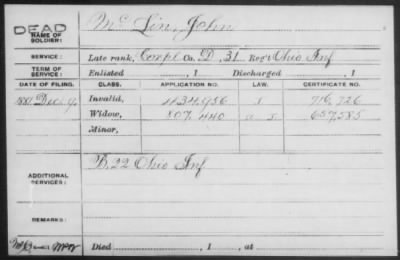 DEAD
NAME OF SOLDIER: Mc Lin, John
SERVICE: Late rank, Corpl Co. D, 31 Reg't Ohio Inf
TERM OF SERVICE: Enlisted , 1 Discharged , 1
DATE OF FILING. CLASS. APPLICATION NO. LAW. CERTIFICATE NO.
1887 Dec. 9, Invalid, 716,726
Widow, 807,440 657,585
Minor,
ADDITIONAL SERVICES: B. 22 Ohio Inf
REMARKS:
Died , 1 , at